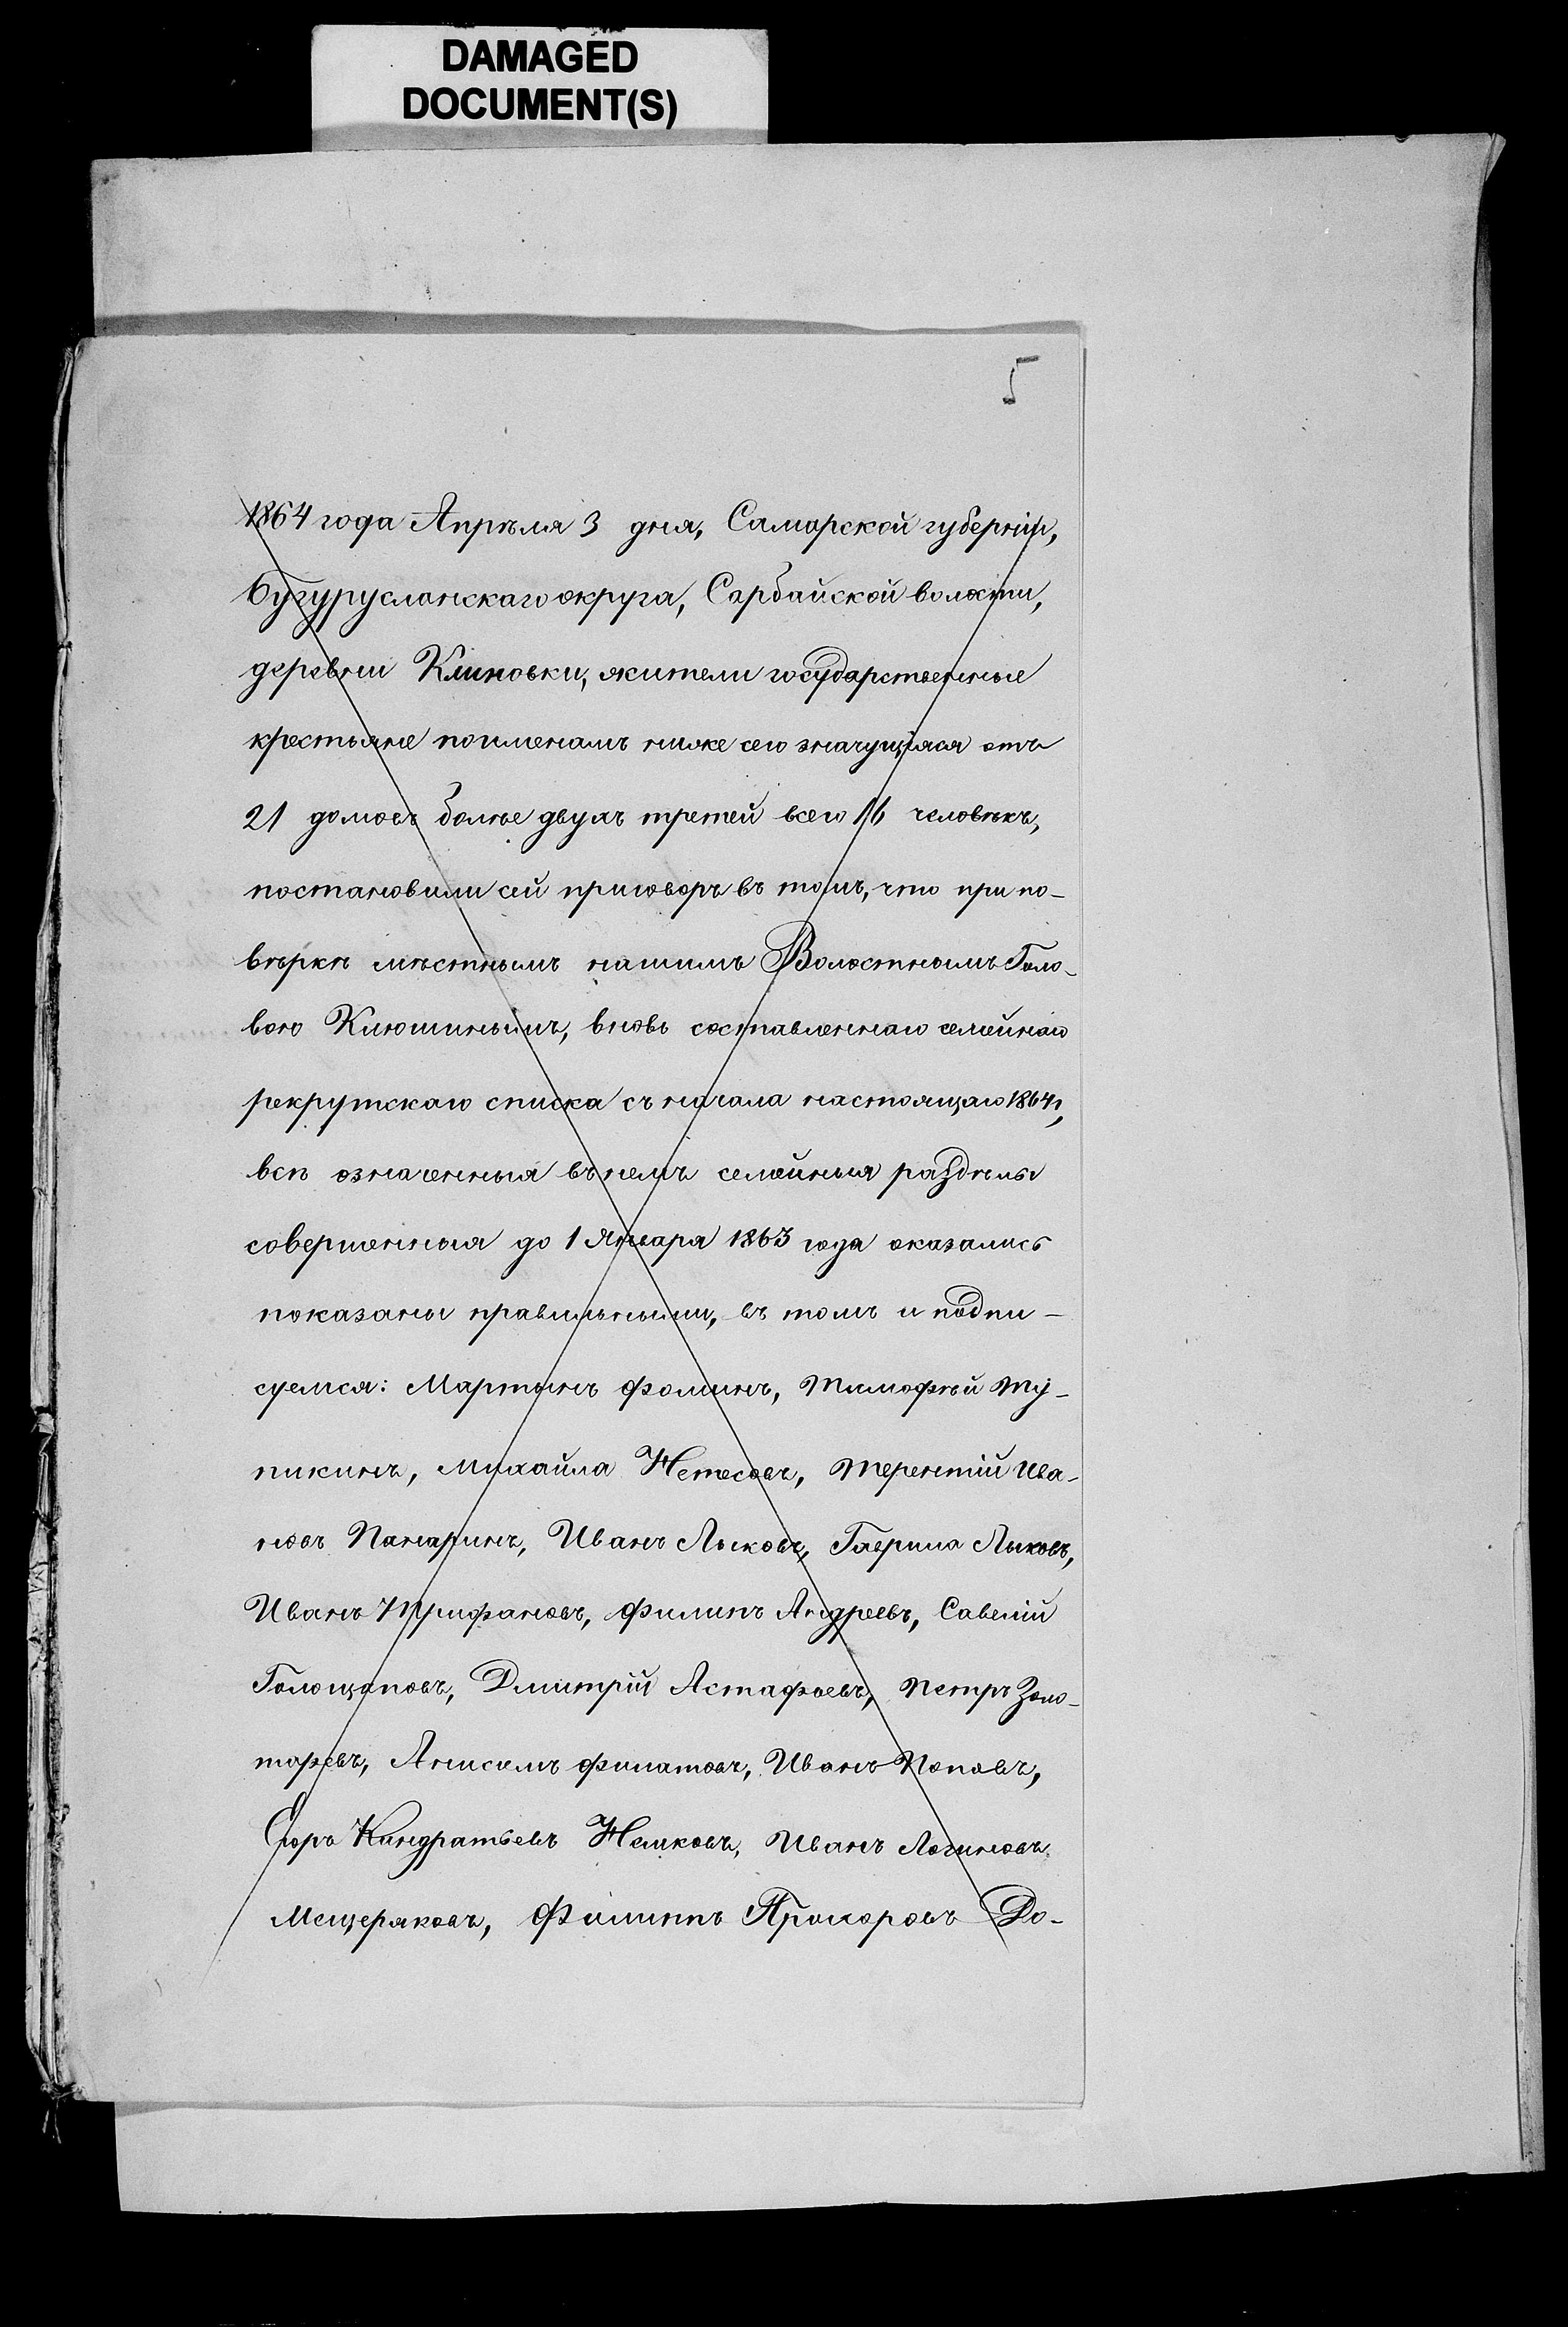 DAMAGED
DOCUMENT(S)
5
1864 года Апрѣля 3 дня, Самарской губерніи,
Бугурусланскаго округа, Сарбайской волости,
деревни Клиновки, жители государственные
крестьяне поименамъ ниже сего значущіяся отъ
21 домовъ болѣе двухъ третей всего 16 человѣкъ,
постановили сей приговоръ въ томъ, что при по-
вѣркѣ мѣстнымъ нашимъ Волостнымъ Голо-
вою Клюшинымъ, вновь составленнаго семейнаго
рекрутскаго списка съ начала настоящаго 1864 г,
всѣ означенныя въ немъ семейныя раздѣлы
совершенныя до 1 Января 1863 года оказались
показаны правильными, въ томъ и подпи-
суемся: Мартынъ Фоминъ, Тимофѣй Ту-
пикинъ, Михайла Нетесовъ, Терентій Ива-
новъ Панаринъ, Иванъ Лыковъ, Гаврила Лыковъ,
Иванъ Трифановъ, Филипъ Андреевъ, Савелій
Голощаповъ, Дмитрій Астафьевъ, Петръ Золо-
таревъ, Анисимъ Филатовъ, Иванъ Поповъ,
Егоръ Киндратьевъ Немковъ, Иванъ Логиновъ
Мещеряковъ, Филиппъ Прохоровъ До-